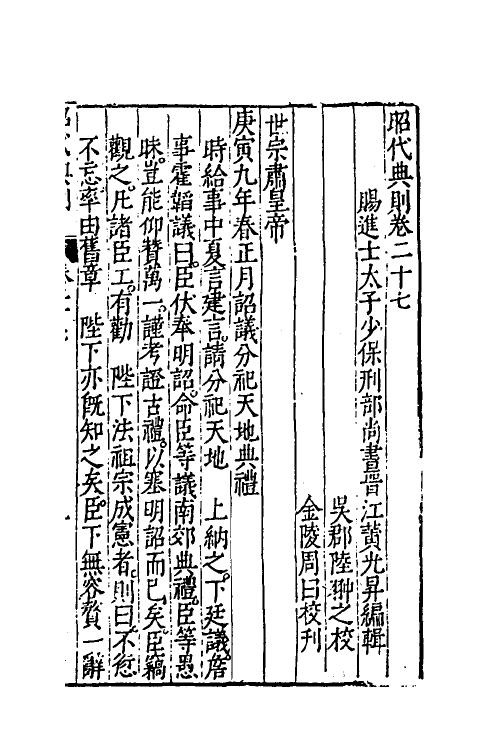 昭代典則卷二十七
賜進士太子少保刑部尚書晉江黃光昇編輯
吳郡陸翀之校
金陵周曰校刊
世宗肅皇帝
庚寅九年春正月詔議分祀天地典禮
時給事中夏言建言請分祀天地 上納之下廷議詹
事霍韜議曰臣伏奉明詔命臣等議南郊典禮臣等愚
昧豈能仰贊萬一謹考證古禮以塞明詔而已矣臣竊
觀之凡諸臣工有勸 陛下法祖宗成憲者則曰不愆
不忘率由舊章 陛下亦旣知之矣臣下無容贅一辭